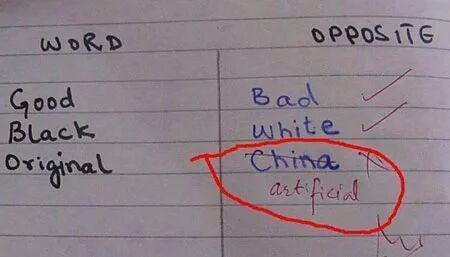 WORD OPPOSITE
Good Bad
Black White
Original China
artificial